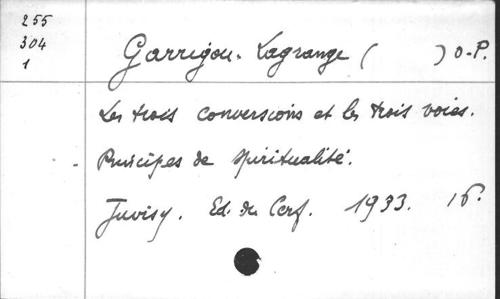 255
304
1
Garrigou-Lagrange ( ) O.P.
Les trois conversions et les trois voies.
Principes de spiritualité.
Juvisy. Ed. du Cerf. 1933. 16°.